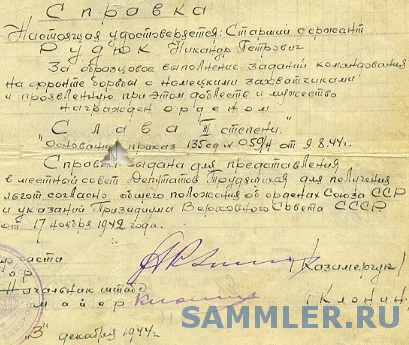 Справка
Настоящая удостоверяется: Старший сержант
Рудюк Никандр Петрович
За образцовое выполнение заданий командования
на фронте борьбы с немецкими захватчиками
и проявленную при этом доблесть и мужество
награжден орденом
Слава "III степени."
"Основание приказ 135 сд № 059/н от 9.8.44г.
Справка выдана для представления
в местный совет Депутатов Трудящихся для получения
льгот согласно общего положения об орденах Союза ССР
и указаний Призидиума Верховного Совета СССР
от 17 ноября 1942 года.
части
/Казимерчук/
Начальник штаба
майор
/Клонин/
"3" декабря 1944г.
SAMMLER.RU